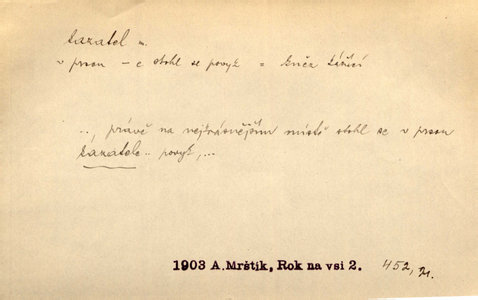 kazatel m.
v prsou -e stohl se povyk = kněz kážící
.., právě na nejkrásnějším místě stohl se v prsou
kazatele.. povyk,...
1903 A. Mrštík, Rok na vsi 2. 452, 21.